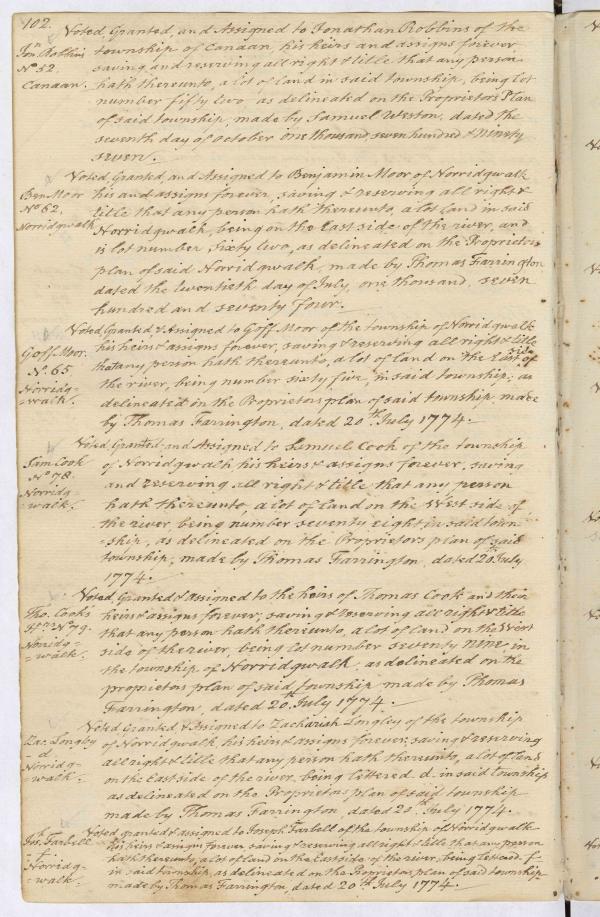 102.
Voted Granted, and Assigned to Jonathan Robbins of the
Jon. Robbins
No 52.
Canaan.
township of Canaan, his heirs and assigns forever
saving and reserving all right & title that any person
hath thereunto, a lot of land in said township, being lot
number fifty two, as delineated on the Proprietors Plan
of said township, made by Samuel Weston, dated the
seventh day of October one thousand, seven hundred & ninety
seven.
Voted, Granted, and Assigned to Benjamin Moor of Norridgwalk
Ben Moor
No 62.
Norridgwalk
his and assigns forever, saving & reserving all right &
title that any person hath thereunto, a lot land in said
Norridgwalk, being on the East side of the river, and
is lot number, sixty two, as delineated on the Proprietors
plan of said Norridgwalk, made by Thomas Farrington
dated the twentieth day of July, one thousand, seven
hundred and seventy four.
Voted, Granted & Assigned to Goff Moor of the township of Norridgwalk
Goff Moor.
No. 65.
Norridg-
-walk.
his heirs & assigns forever, saving & reserving all right & title
that any person hath thereunto, a lot of land on the East side of
the river, being number sixty five, in said township; as
delineated on the Proprietors plan of said township made
by Thomas Farrington, dated 20th July 1774.
Voted, Granted and Assigned to Samuel Cook of the township
Sam Cook
No 78.
Norridg-
-walk.
of Norridgwalk his heirs & assigns forever, saving
and reserving all right & title that any person
hath thereunto, a lot of land on the West side of
the river, being number seventy eight in said town
-ship, as delineated on the Proprietors plan of said
township, made by Thomas Farrington, dated 20th July
1774.
Voted, Granted & assigned to the heirs of Thomas Cook and their
Tho. Cook's
No 79.
Norridg-
-walk.
heirs & assigns forever; saving & reserving all right & title
that any person hath thereunto, a lot of land on the West
side of the river, being lot number seventy nine, in
the township of Norridgwalk, as delineated on the
proprietors plan of said township made by Thomas
Farrington, dated 20th July 1774.
Voted Granted, & Assigned to Zachariah Longley of the township
Zac. Longley
d
Norridg-
-walk.
of Norridgwalk, his heirs & assigns forever; saving & reserving
all right & title that any person hath thereunto, a lot of land
on the East side of the river, being lettered d. in said township
as delineated on the Proprietors plan of said township
made by Thomas Farrington, dated 20th July 1774.
Voted granted & assigned to Joseph Farbell of the township of Norridgwalk
Jos. Farbell
f.
Norridg-
-walk.
his heirs & assigns forever, saving & reserving all right & title that any person
hath thereunto, a lot of land on the East side of the river, being lettered f.
in said township, as delineated on the Proprietors plan of said township
made by Thomas Farrington, dated 20th July 1774.